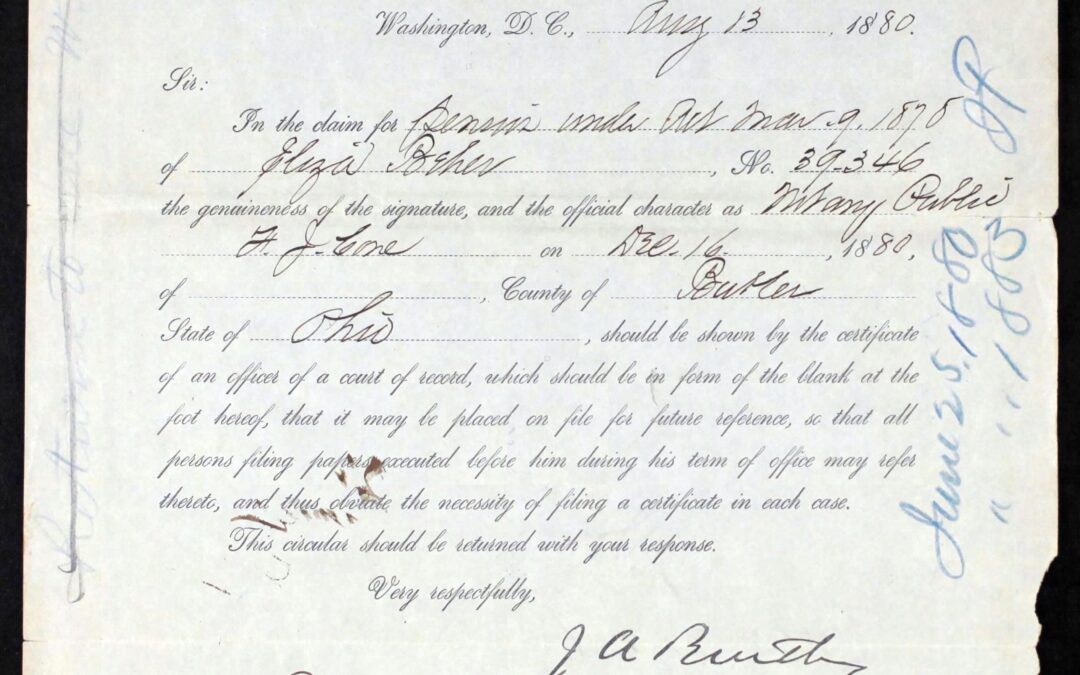 Washington, D. C., Aug 13, 1880.
Sir:
In the claim for Pension under Act Mar. 9, 1878
of Eliza Beher, No. 39-346
the genuineness of the signature, and the official character as Notary Public
F. J. Cone on Dec. 16, 1880,
of , County of Butler
State of Ohio, should be shown by the certificate
of an officer of a court of record, which should be in form of the blank at the
foot hereof, that it may be placed on file for future reference, so that all
persons filing papers executed before him during his term of office may refer
thereto, and thus obviate the necessity of filing a certificate in each case.
This circular should be returned with your response.
Very respectfully,
J A
June 25, 1880
" " 1883